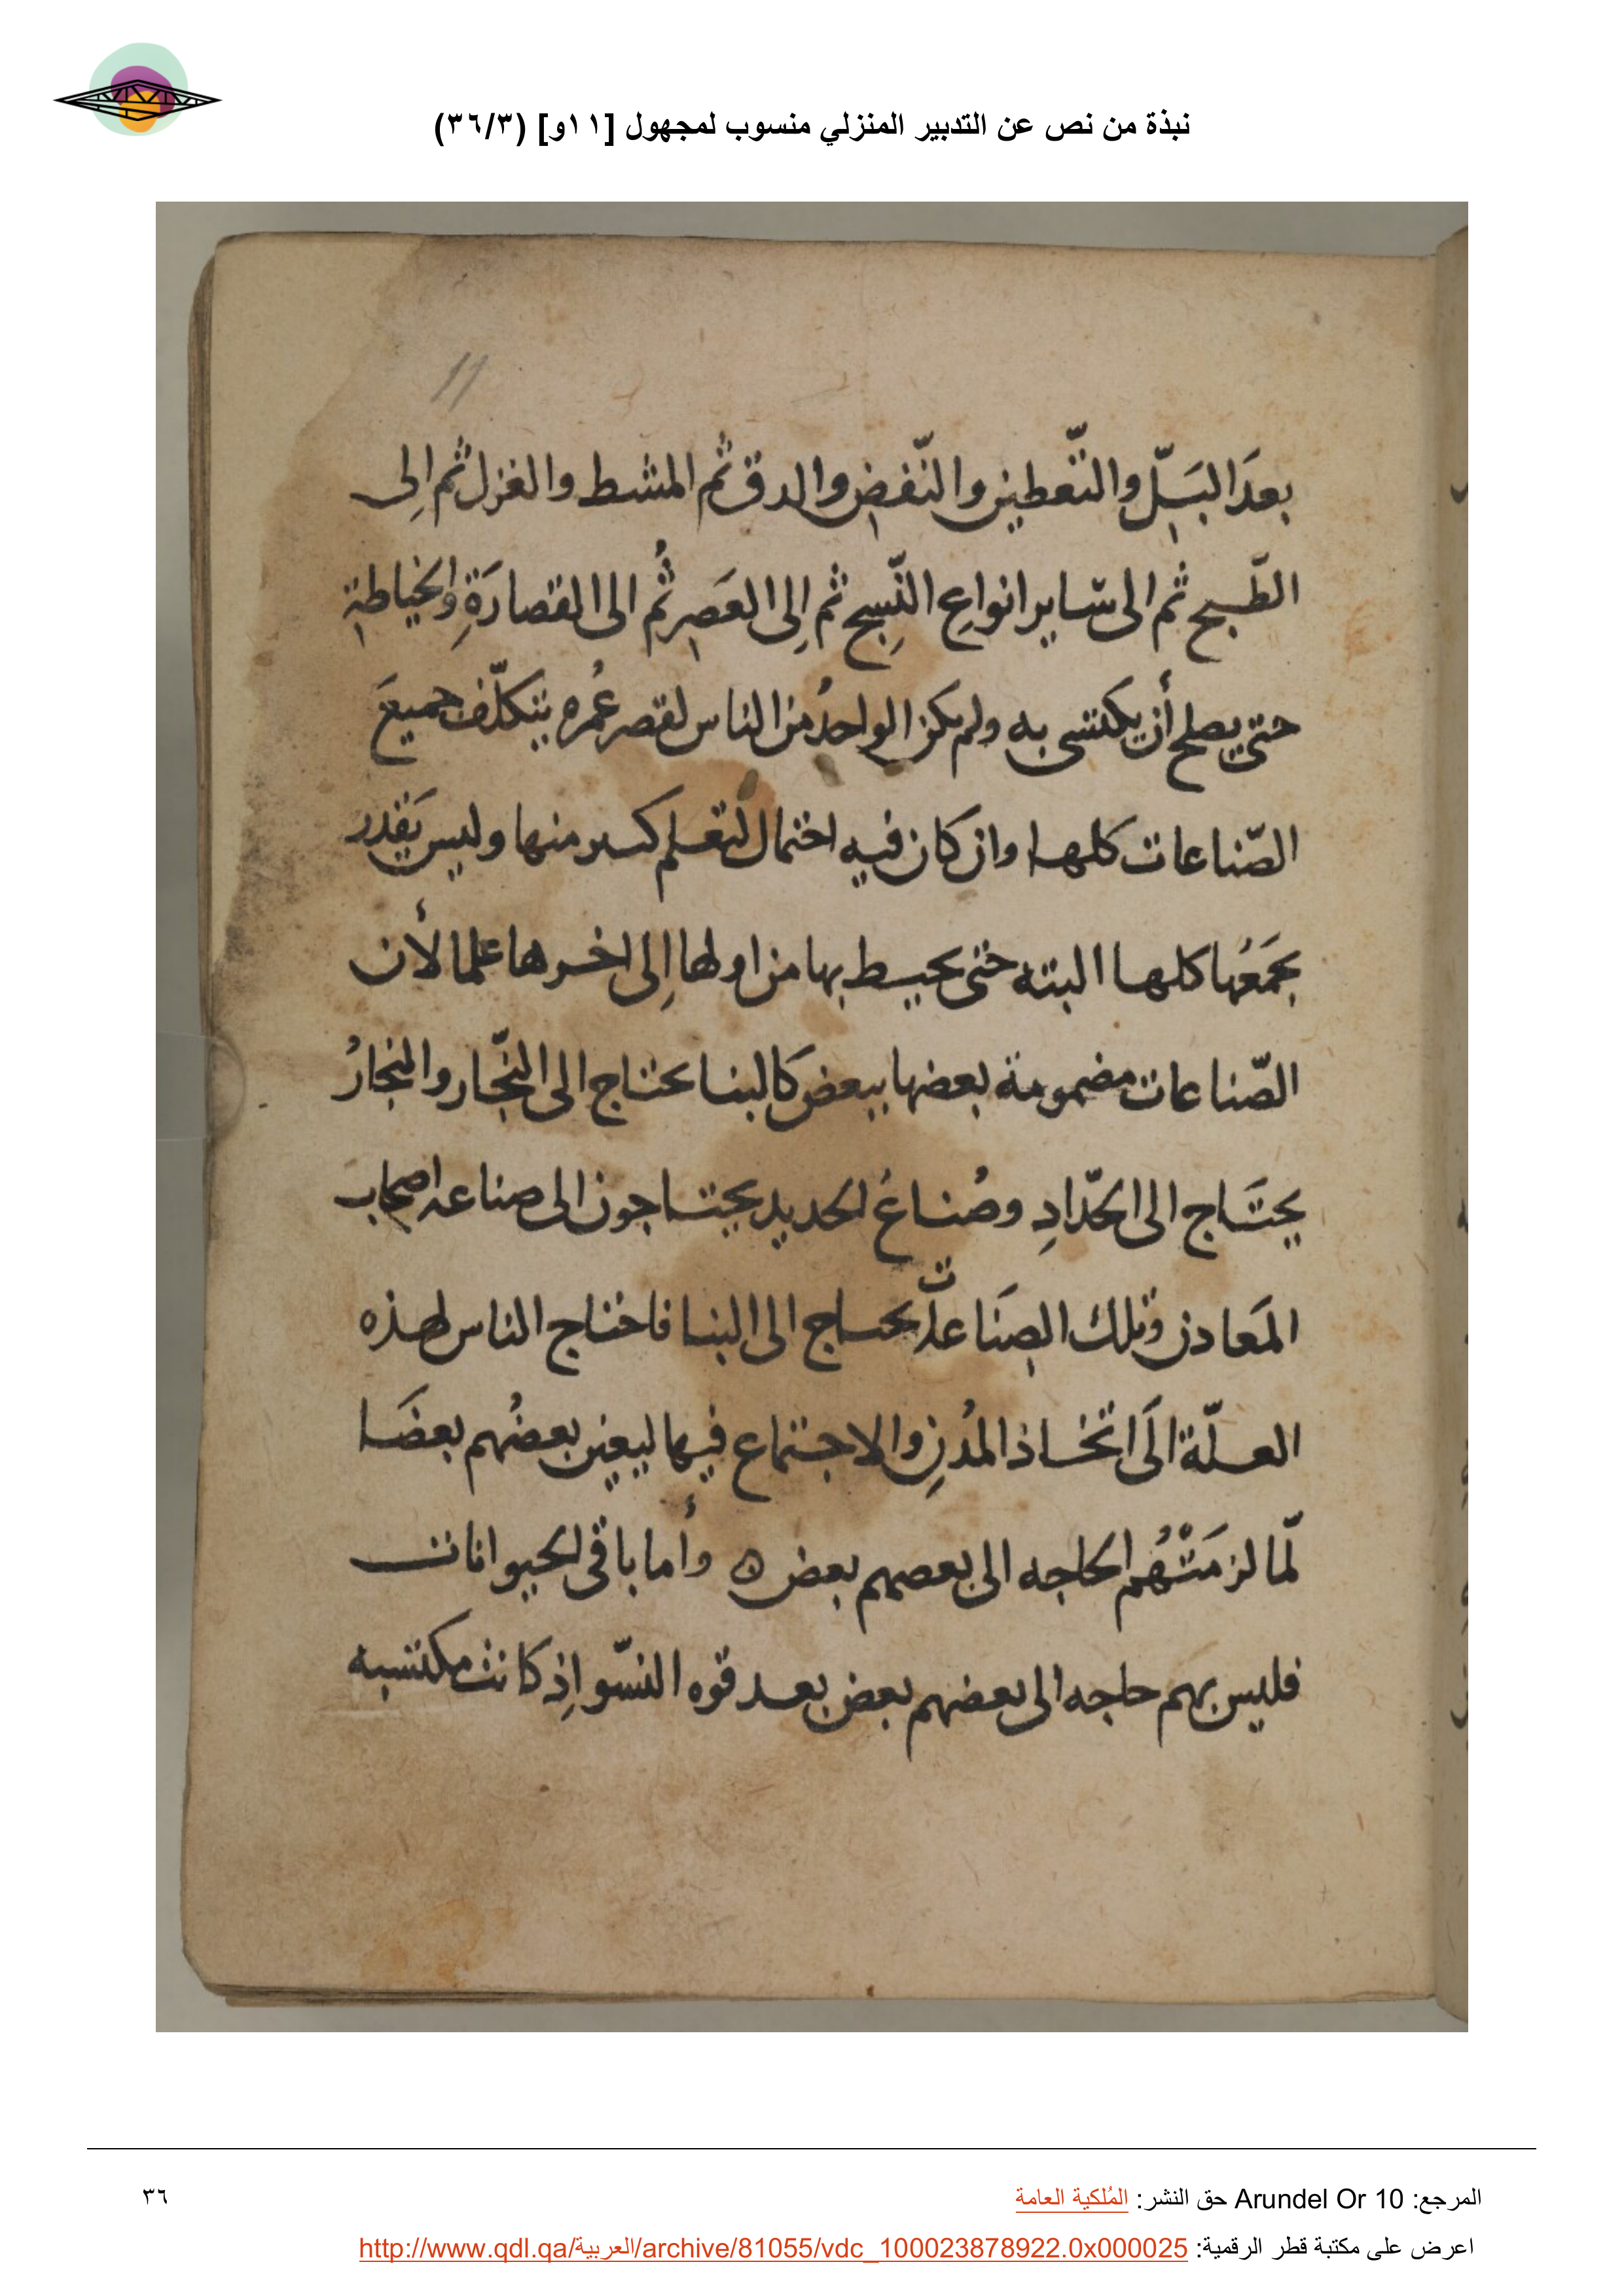 نبذة من نص عن التدبير المنزلي منسوب لمجهول [١١و] (٣٦/٣)
11
بعدَ البَلّ والتّعطين والنّفض والدق ثم المشط والغزل ثم إلى
الطّبخ ثم الى سّاير انواعِ النِّسج ثم إلى العَصر ثُم الى القصارَةِ والخياطة
حتى يصلح أن يكتسى به ولم يكن الواحدُ من الناس لقصر عُمره يتكلّف جميعَ
الصّناعات كلها وان كان فيه احتمال لتعلم كثير منها وليس يَقدر
بجَمَعُها كلها البته حتى يحيط بها من اولها إلى اخرها علما لأن
الصّناعات مضمومة بعضها ببعض كالبنا يحتاج الى النّجار والنجارُ
يحتَاج الى الحدّادِ وصُناعُ الحديد يحتاجون الى صناعه اصحاب
المَعادن وتلك الصنَاعات يحتاج الى البنا فاحتاج الناس لهذه
العلّة الَى اتخاذ المُدنِ والاجتماع فيها ليعين بعضُهم بعضَا
لمّا لزمَتْهُم الحاجه الى بعصهم بعض ه وأما باقى الحيوانات
فليس بهم حاجه الى بعضهم بعض بعد قوه النسّو إذ كانت مكتسبه
المرجع: Arundel Or 10 حق النشر: المُلكية العامة
٣٦
اعرض على مكتبة قطر الرقمية: http://www.qdl.qa/العربية/archive/81055/vdc_100023878922.0x000025